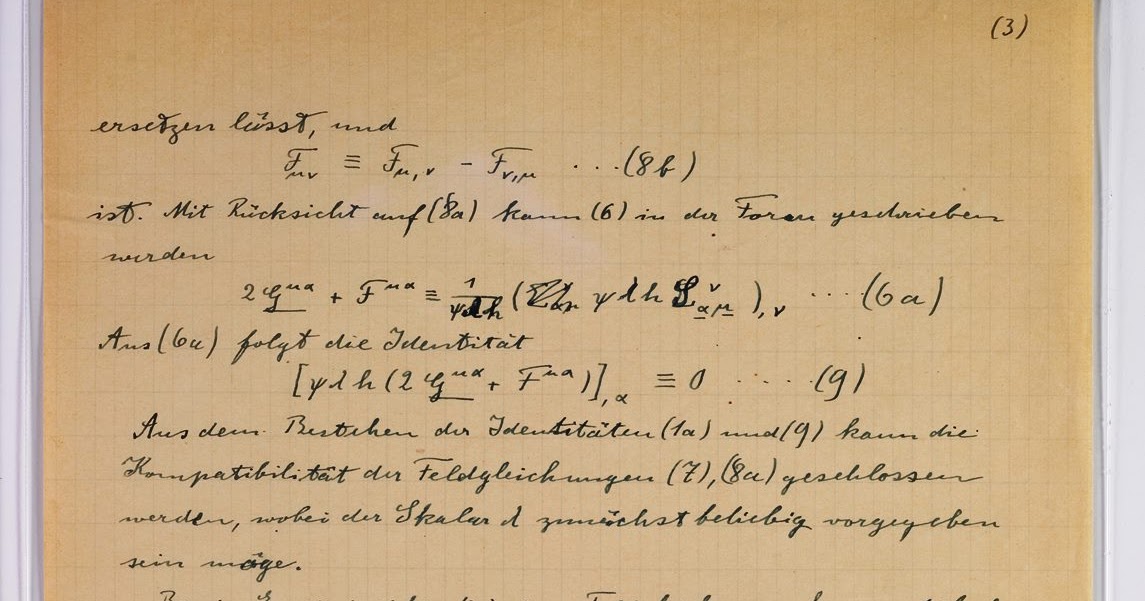 (3)
ersetzen lässt, und
F_μν ≡ F_μ,ν - F_ν,μ ...(8b)
ist. Mit Rücksicht auf (8a) kann (6) in der Form geschrieben
werden
2 G^μα + F^μα ≡ 1/ψλh ( ψλh 𝔏_αμ^ν ),ν ... (6a)
Aus (6a) folgt die Identität
[ψλh (2 G^μα + F^μα)],α ≡ 0 ..... (9)
Aus dem Bestehen der Identitäten (1a) und (9) kann die
Kompatibilität der Feldgleichungen (7), (8a) geschlossen
werden, wobei der Skalar λ zunächst beliebig vorgegeben
sein möge.